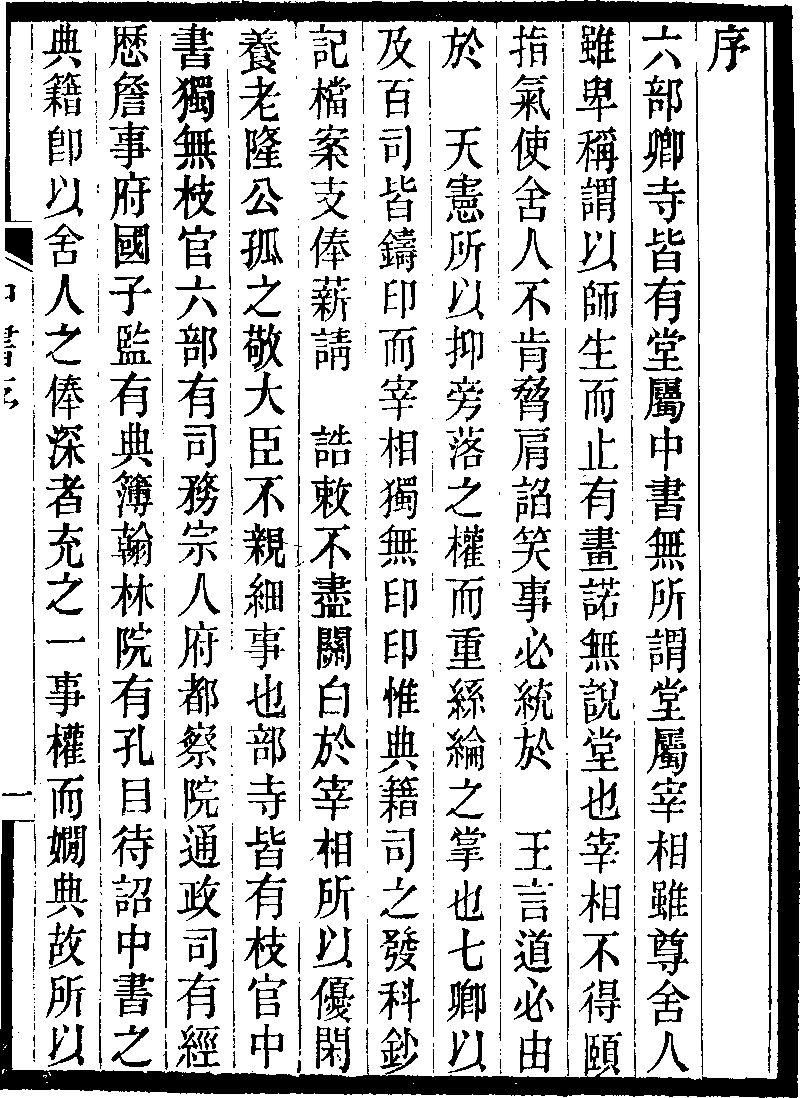 序
六部卿寺皆有堂屬中書無所謂堂屬宰相雖尊舍人
雖卑稱謂以師生而止有畫諾無說堂也宰相不得頤
指氣使舍人不肯脅肩諂笑事必統於　王言道必由
於　天憲所以抑旁落之權而重絲綸之掌也七卿以
及百司皆鑄印而宰相獨無印印惟典籍司之發科鈔
記檔案支俸薪請　誥敕不盡關白於宰相所以優閑
養老隆公孤之敬大臣不親細事也部寺皆有枝官中
書獨無枝官六部有司務宗人府都察院通政司有經
歷詹事府國子監有典簿翰林院有孔目待詔中書之
典籍卽以舍人之俸深者充之一事權而嫺典故所以
一